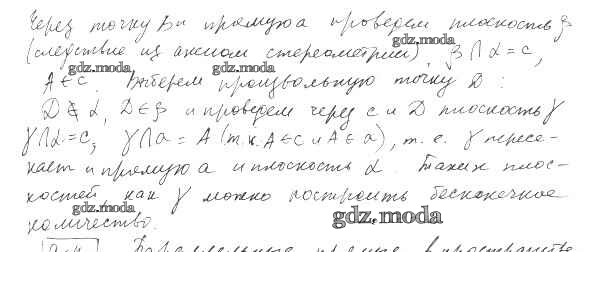 Через точку B и прямую a проведем плоскость β
(следствие из аксиом стереометрии), β ∩ α = c,
A ∈ c. Выберем произвольную точку D :
D ∉ α, D ∉ β и проведем через c и D плоскость γ
γ ∩ α = c, γ ∩ a = A (т.к. A ∈ c и A ∈ a), т.е. γ пересе-
кает и прямую a и плоскость α. Таких плос-
костей как γ можно построить бесконечное
количество.
gdz.moda
gdz.moda
gdz.moda
gdz.moda
gdz.moda